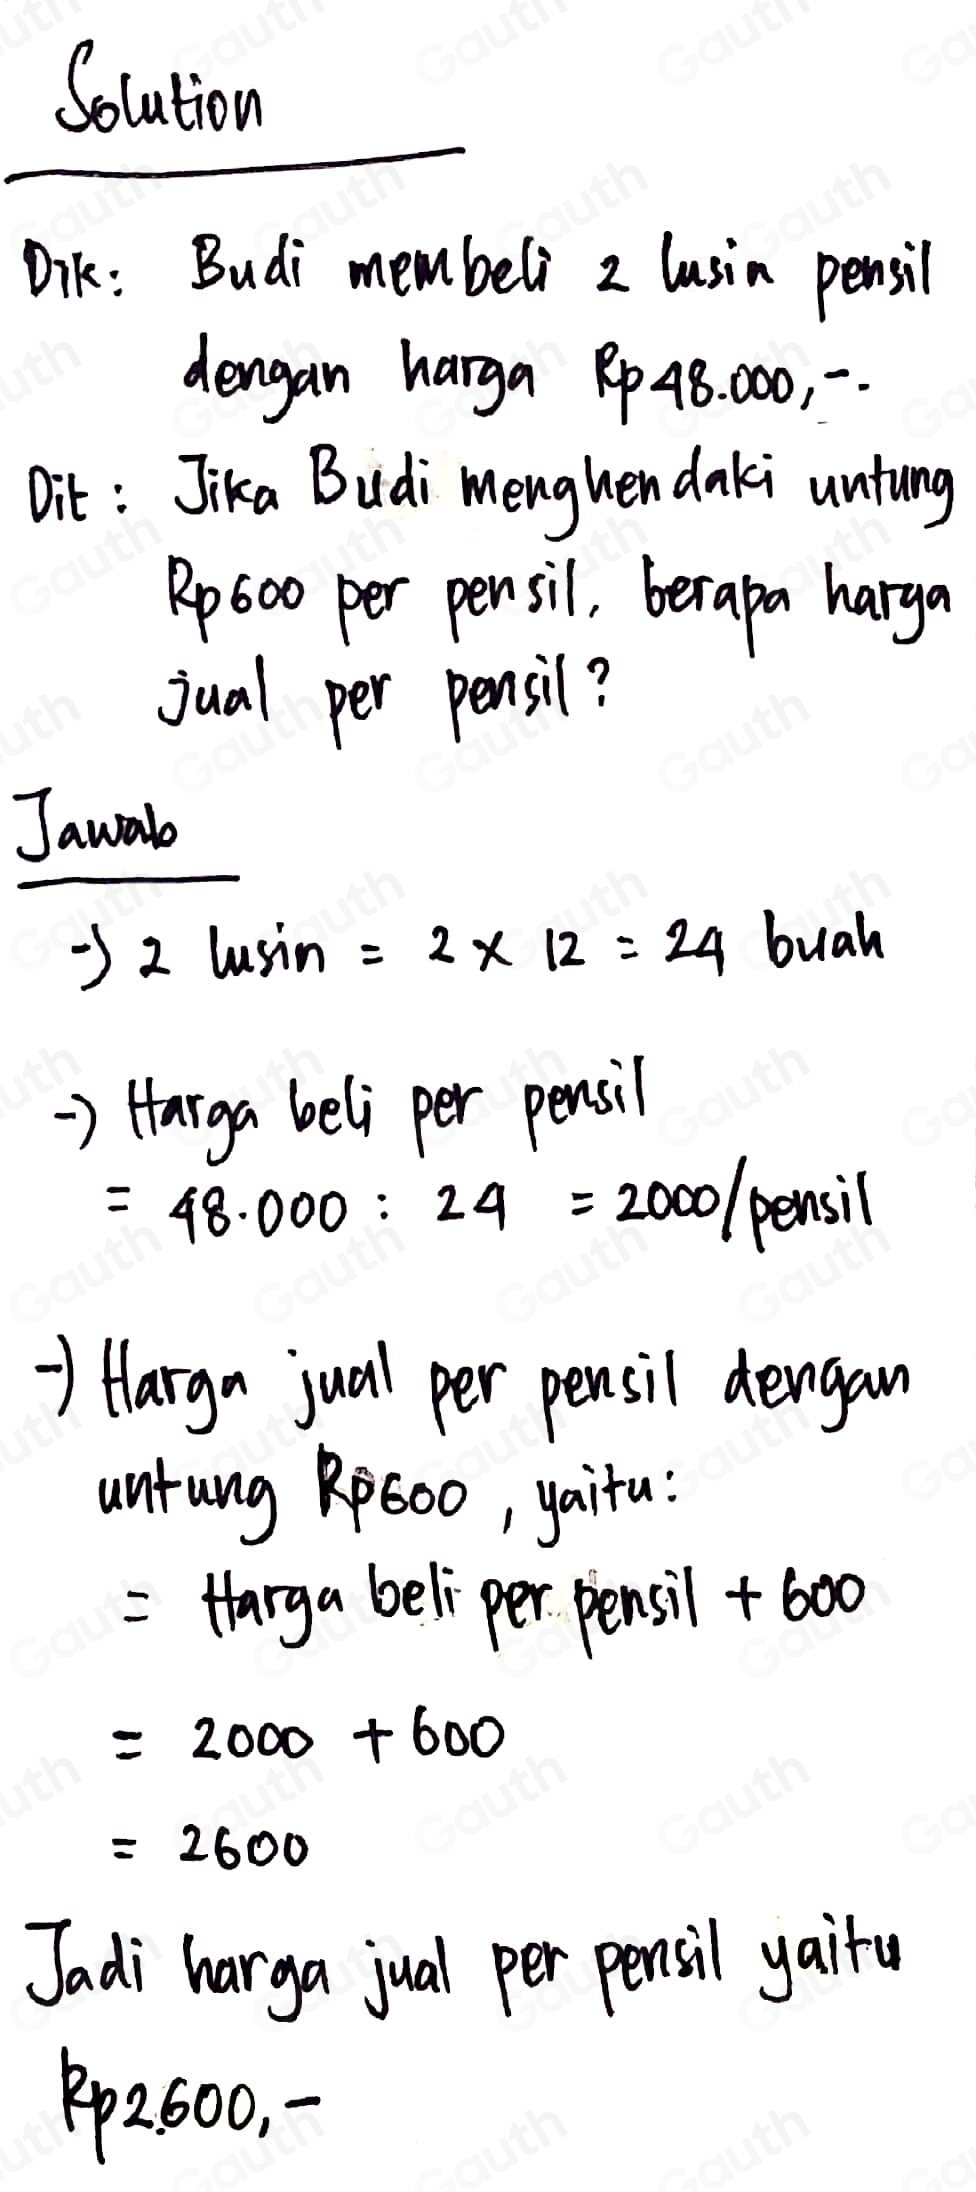 Solution
Dik: Budi membeli 2 lusin pensil
dengan harga Rp48.000,-.
Dit: Jika Budi menghendaki untung
Rp600 per pensil, berapa harga
jual per pensil?
Jawab
-> 2 lusin = 2 x 12 = 24 buah
-> Harga beli per pensil
= 48.000 : 24 = 2000/pensil
-> Harga jual per pensil dengan
untung Rp600, yaitu:
= Harga beli per pensil + 600
= 2000 + 600
= 2600
Jadi harga jual per pensil yaitu
Rp2.600,-